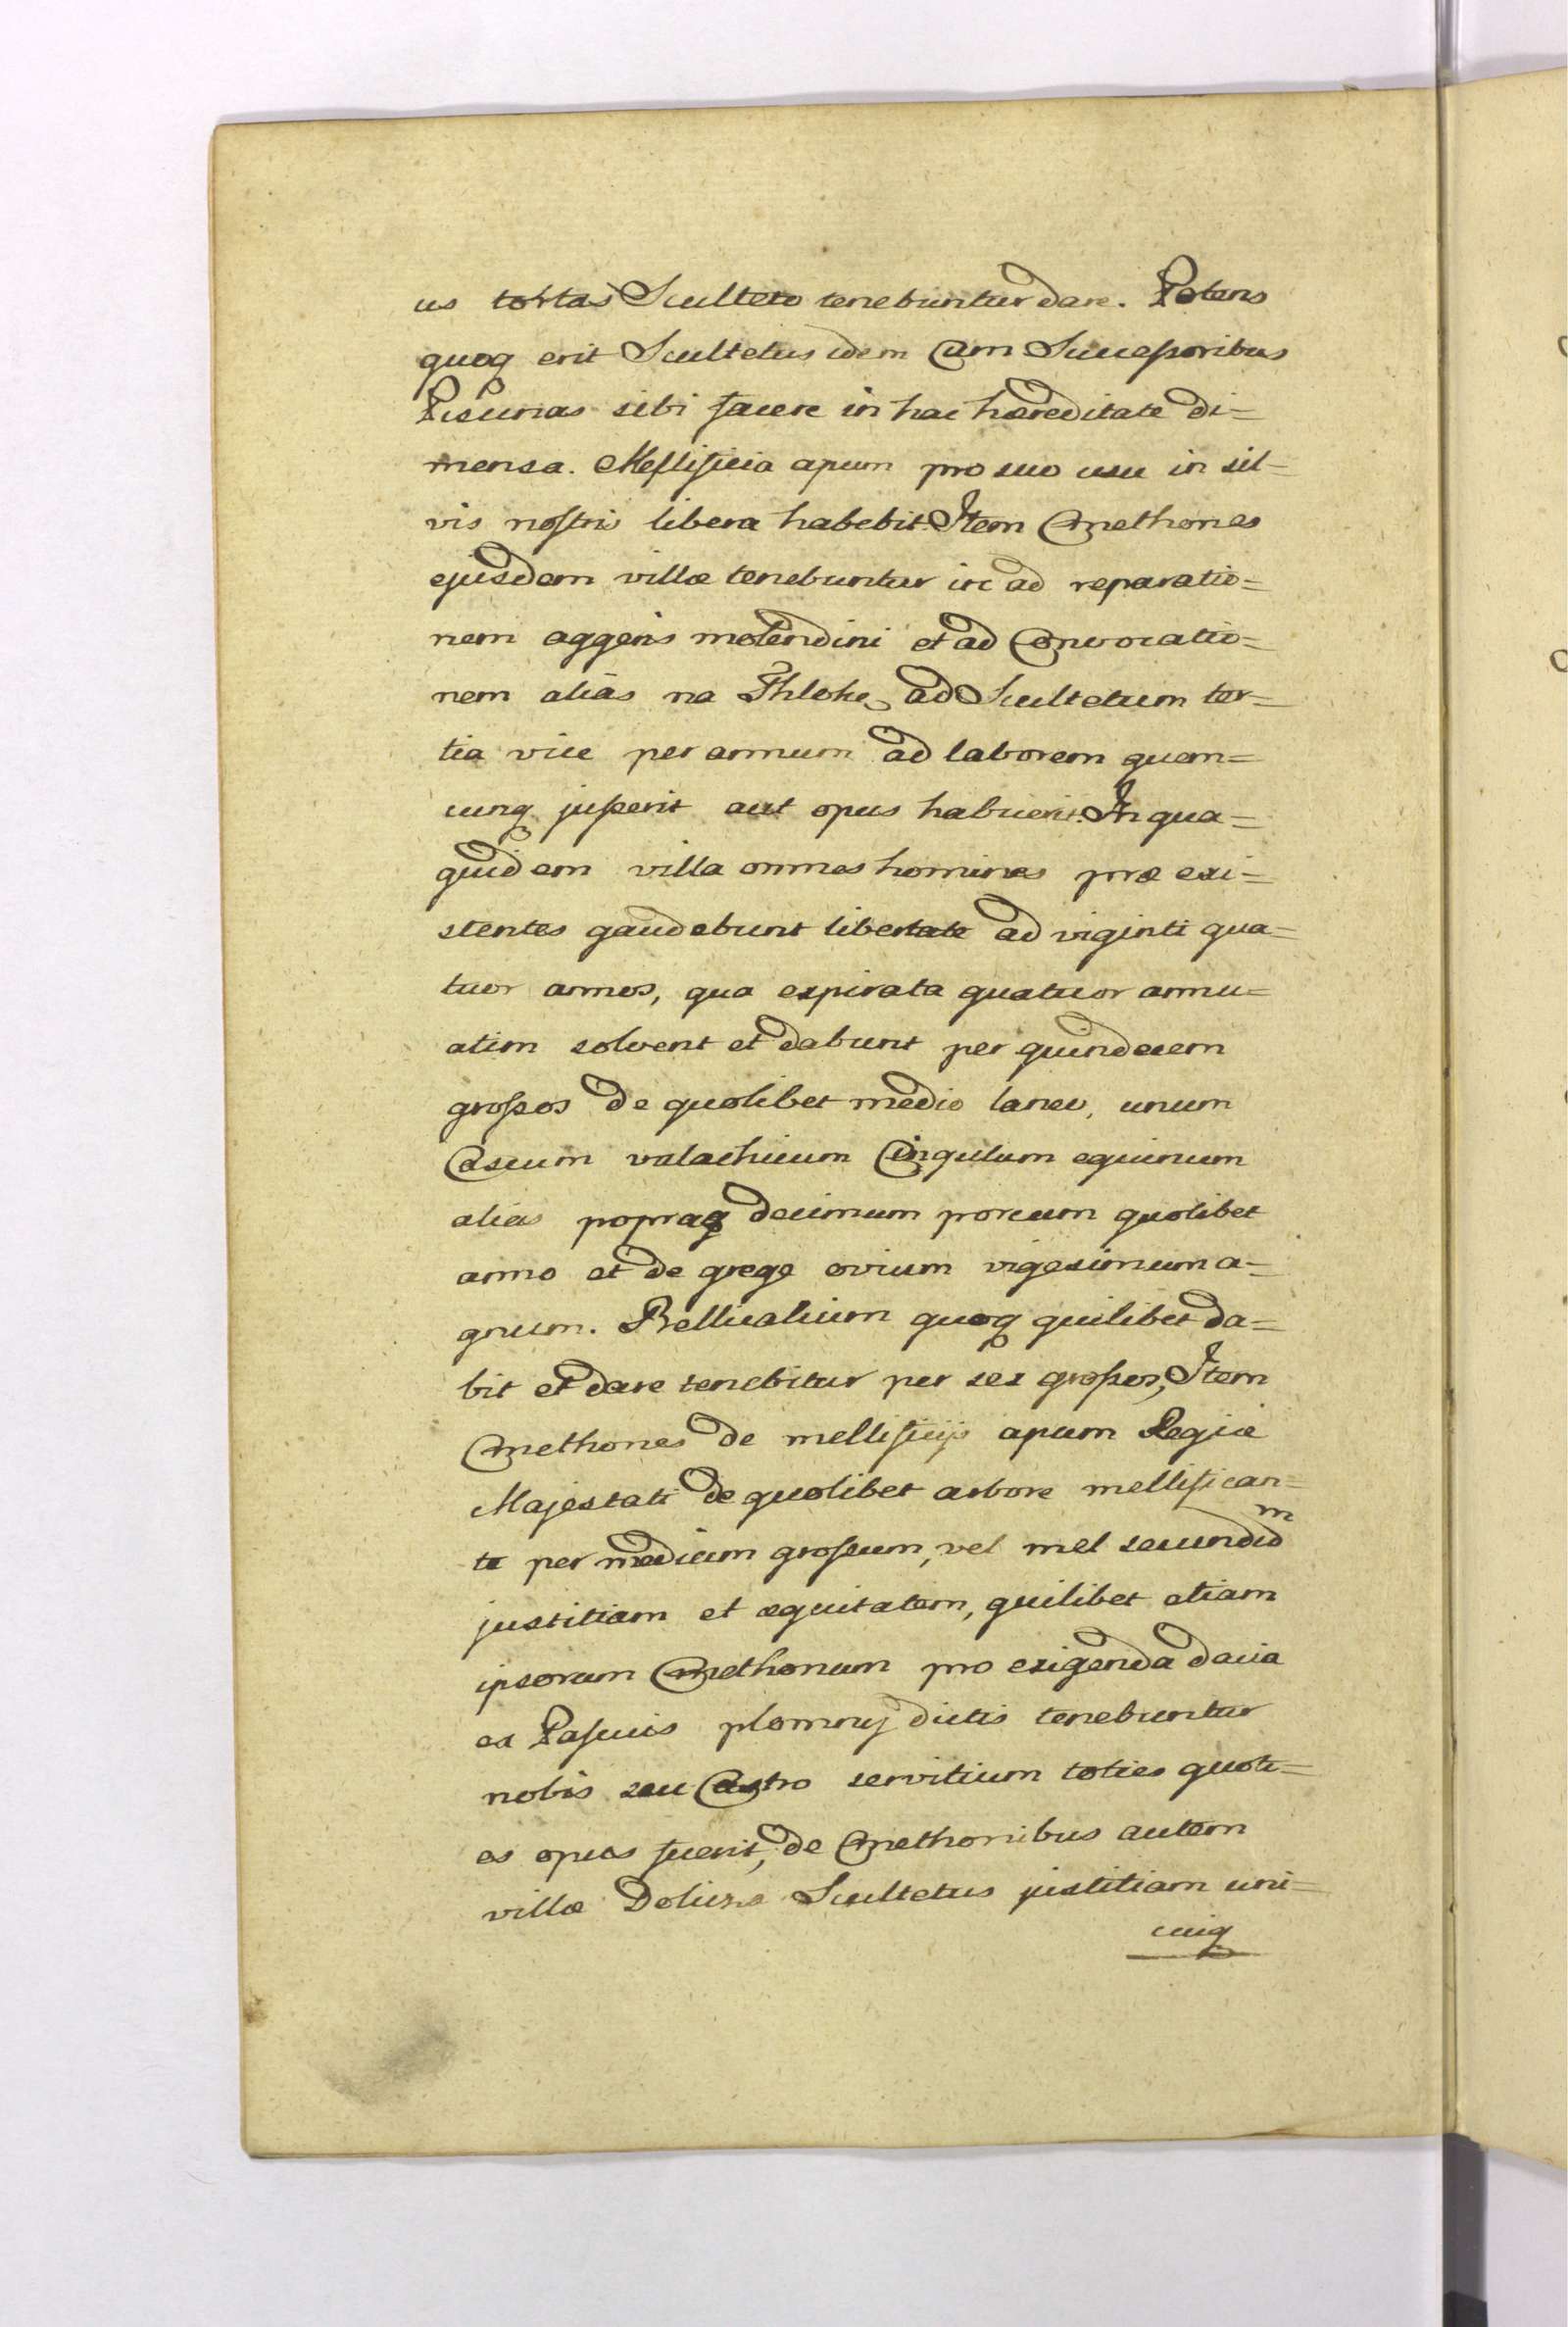 us tortas Sculteto tenebuntur dare. Potens
quoq erit Scultetus idem Cum Successoribus
Piscinas sibi facere in hac hæreditate di=
mensa. Mellificia apum pro suo usu in sil=
vis nostris libera habebit. Item Cmethones
ejusdem villæ tenebuntur ire ad reparatio=
nem aggeris molendini et ad Convocatio=
nem alias na Thloke, ad Scultetum ter=
tia vice per annum ad laborem quem=
cunq jusserit aut opus habuerit. In qua=
quidem villa omnes homines præ exi=
stentes gaudebunt libertate ad viginti qua=
tuor annos, qua expirata quatuor annu=
atim solvent et dabunt per quindecem
grossos de quolibet medio laneo, unum
Caseum valachicum Cingulum equinum
alias poprag decimum porcum quolibet
anno et de grege ovium vigesimum a=
gnum. Bellicalium quoq quilibet da=
bit et dare tenebitur per sex grossos, Item
Cmethones de mellificijs apum Regiæ
Majestati de quolibet arbore mellifican=
te per medium grossum, vel mel secundum
justitiam et æquitatem, quilibet etiam
ipsorum Cmethonum pro exigenda dacia
ex Pascuis plomny dictis tenebuntur
nobis seu Castro servitium toties quoti=
es opus fuerit, de Cmethonibus autem
villæ Scultetus justitiam uni=
cuiq